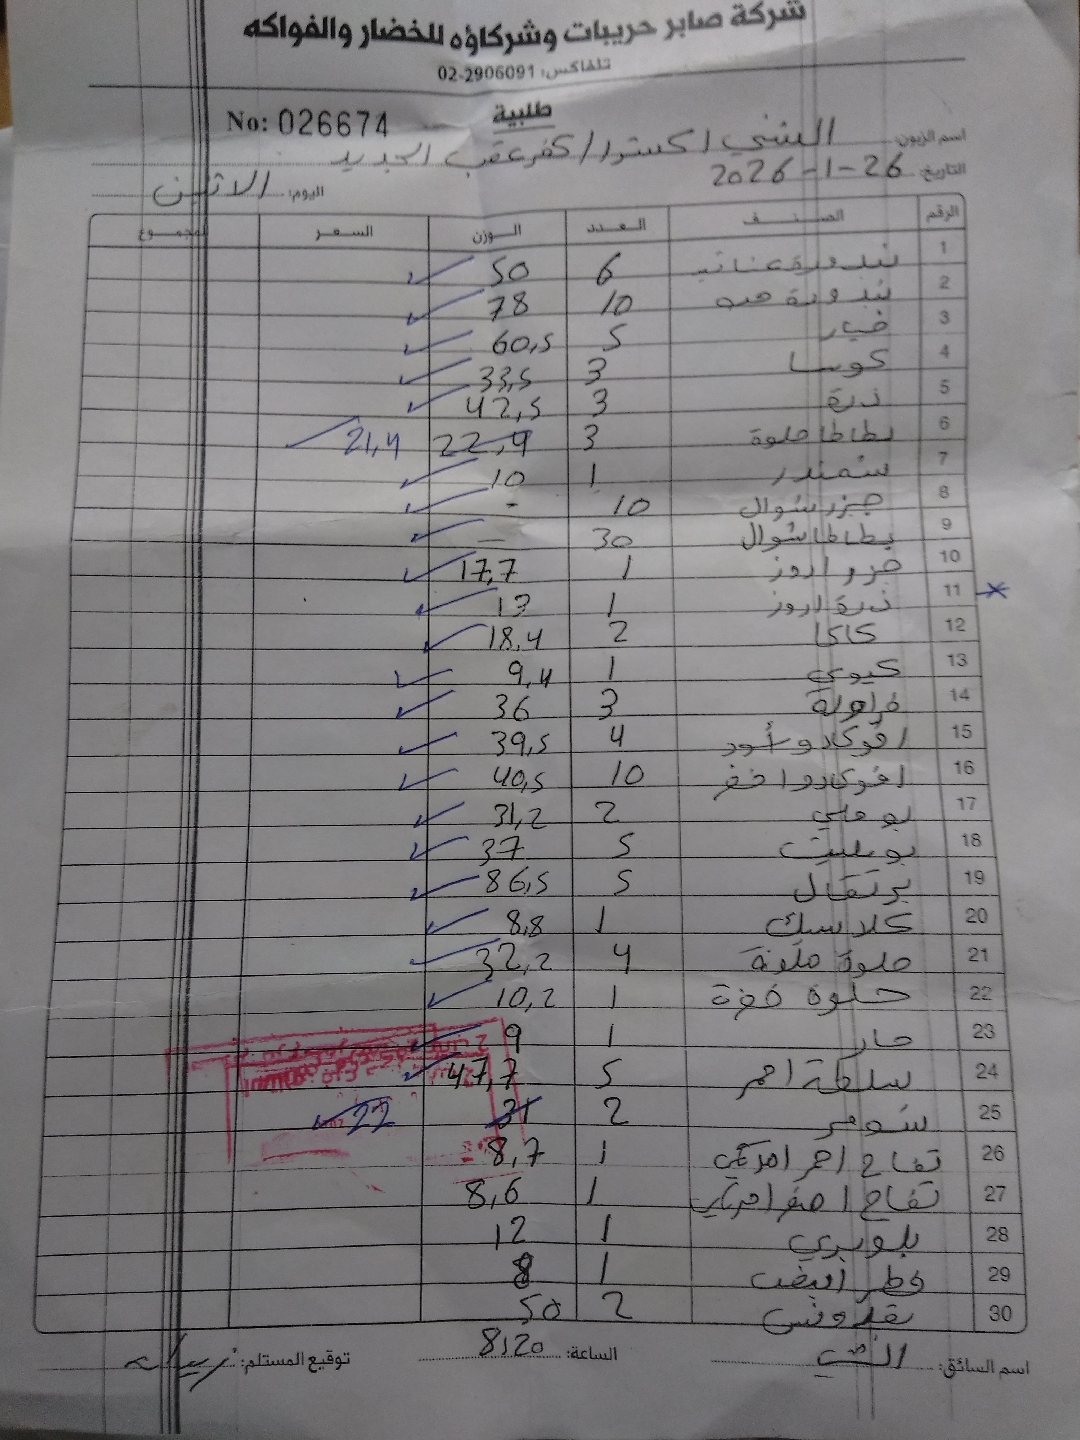 شركة صابر حريبات وشركاؤه للخضار والفواكه
تلفاكس: 02-2906091
طلبية
No: 026674
اسم الزبون: الشني اكسترا / كفر عقب الجديد
التاريخ: 26-1-2026
اليوم: الاثنين
الرقم الصنف العدد الوزن السعر المجموع
1 بندورة عناقيد 6 50
2 بندورة حبه 10 78
3 خيار 5 60,5
4 كوسا 3 33,5
5 ذرة 3 42,5
6 بطاطا حلوة 3 22,9 21,4
7 شمندر 1 10
8 جزر شوال 10 -
9 بطاطا شوال 30 -
10 اروز 1 17,7
11 ذرة اروز 1 13
12 كاكا 2 18,4
13 كيوي 1 9,4
14 فراولة 3 36
15 افوكادو أسود 4 39,5
16 افوكادو اخضر 10 40,5
17 بوملي 2 31,2
18 بوميلت 5 37
19 برتقال 5 86,5
20 كلاسيك 1 8,8
21 حلوة ملونة 4 32,2
22 حلوة خضرة 1 10,2
23 حار 1 9
24 سلطة احمر 5 47,7
25 شومر 2 31 22
26 تفاح احمر امريكي 1 8,7
27 تفاح اصفر امريكي 1 8,6
28 بلوبري 1 12
29 فطر ابيض 1 8
30 بقدونس 2 50
اسم السائق:
الساعة: 8:20
توقيع المستلم: